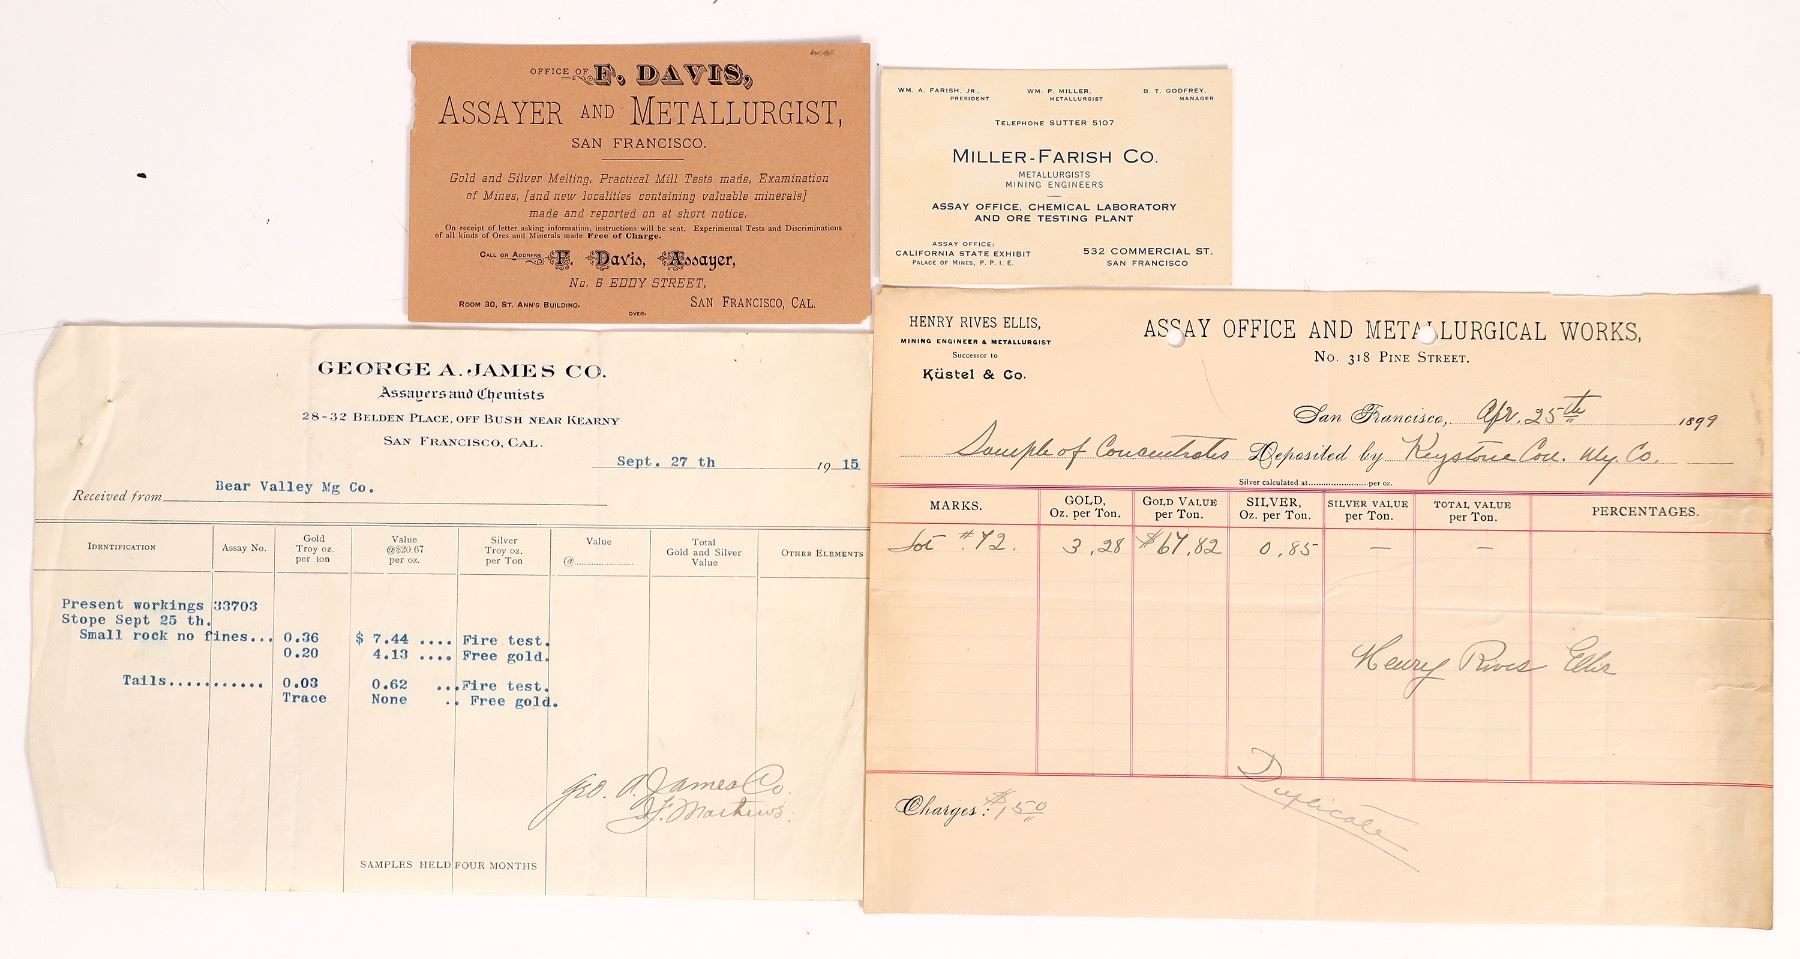 OFFICE OF F. DAVIS,
ASSAYER AND METALLURGIST,
SAN FRANCISCO.
Gold and Silver Melting, Practical Mill Tests made, Examination
of Mines, [and new localities containing valuable minerals]
made and reported on at short notice.
On receipt of letter asking information, instructions will be sent. Experimental Tests and Discriminations
of all kinds of Ores and Minerals made Free of Charge.
CALL OR ADDRESS F. Davis, Assayer,
No. 6 EDDY STREET,
ROOM 30, ST. ANN'S BUILDING. SAN FRANCISCO, CAL.
OVER.
WM. A. FARISH, JR., WM. P. MILLER, B. T. GODFREY,
PRESIDENT METALLURGIST MANAGER
TELEPHONE SUTTER 5107
MILLER-FARISH CO.
METALLURGISTS
MINING ENGINEERS
ASSAY OFFICE, CHEMICAL LABORATORY
AND ORE TESTING PLANT
ASSAY OFFICE:
CALIFORNIA STATE EXHIBIT
PALACE OF MINES, P. P. I. E.
532 COMMERCIAL ST.
SAN FRANCISCO
GEORGE A. JAMES CO.
Assayers and Chemists
28-32 BELDEN PLACE, OFF BUSH NEAR KEARNY
SAN FRANCISCO, CAL.
Sept. 27 th 1915
Received from Bear Valley Mg Co.
IDENTIFICATION
Assay No.
Gold
Troy oz.
per ton
Value
@$20.67
per oz.
Silver
Troy oz.
per Ton
Value
@...............
Total
Gold and Silver
Value
OTHER ELEMENTS
Present workings 33703
Stope Sept 25 th.
Small rock no fines... 0.36 $ 7.44 .... Fire test.
0.20 4.13 .... Free gold.
Tails........... 0.03 0.62 ...Fire test.
Trace None .. Free gold.
Geo. A. James Co.
SAMPLES HELD FOUR MONTHS
HENRY RIVES ELLIS,
MINING ENGINEER & METALLURGIST
Successor to
Küstel & Co.
ASSAY OFFICE AND METALLURGICAL WORKS,
No. 318 PINE STREET.
San Francisco, Apr. 25th 1899
Sample of Concentrates Deposited by Keystone Con. Mg. Co.
Silver calculated at........................per oz.
MARKS.
GOLD,
Oz. per Ton.
GOLD VALUE
per Ton.
SILVER,
Oz. per Ton.
SILVER VALUE
per Ton.
TOTAL VALUE
per Ton.
PERCENTAGES.
Lot #72. 3.28 $67.82 0.85 — —
Henry Rives Ellis
Duplicate
Charges: $1.50